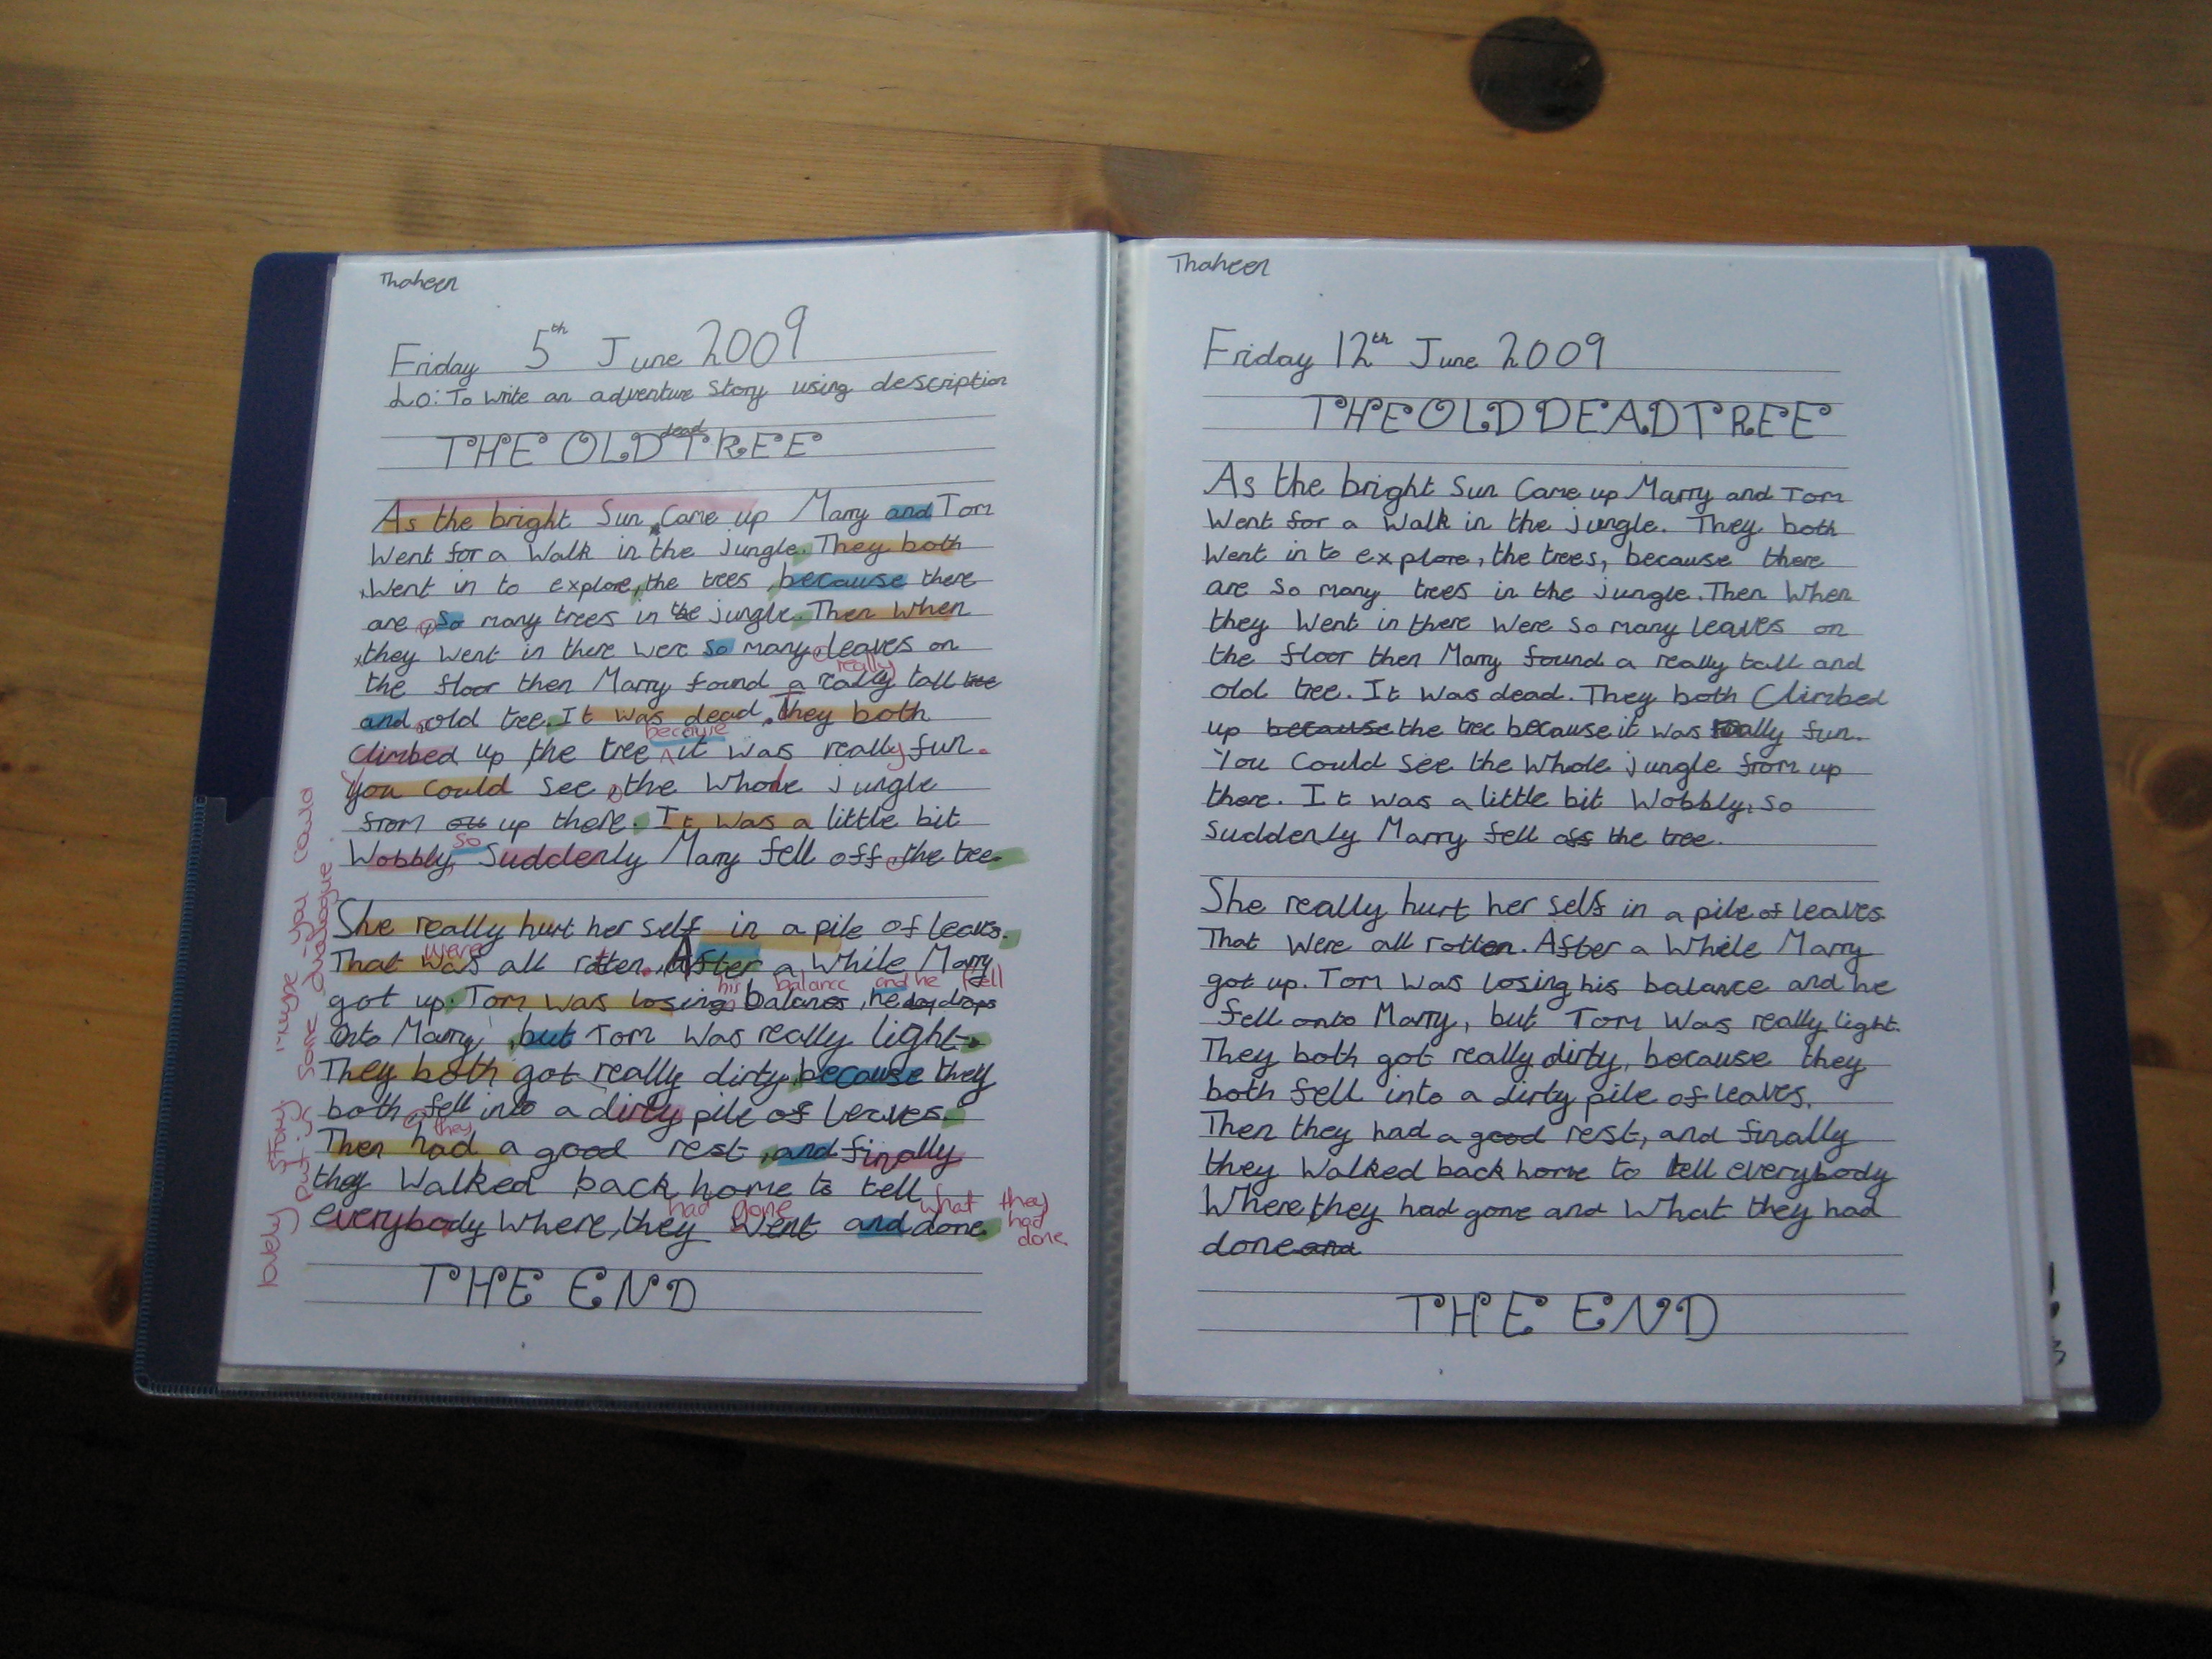 Thaheen
Friday 5th June 2009
LO: To write an adventure Story using description
dead
THE OLD TREE
As the bright Sun Came up Marry and Tom
Went for a Walk in the jungle. They both
Went in to explore, the trees, because there
are so many trees in the jungle. Then When
they Went in there were so many leaves on
really
the floor then Marry found a really tall tree
and old tree. It was dead. They both
because
Climbed up the tree it was really fun.
You could see the Whole jungle
from off up there. It was a little bit
so
Wobbly, Suddenly Marry fell off the tree.
She really hurt her self in a pile of leaves.
were
That was all rotten. After a While Marry
his balance and he fell
got up. Tom was losing balance, he drops
onto Marry, but Tom Was really light.
They both got really dirty, because they
both fell into a dirty pile of leaves.
they
Then had a good rest, and finally
they Walked back home to tell
had gone what they had done
everybody Where, they Went and done.
THE END
lovely story maybe you could
put in some dialogue.
Thaheen
Friday 12th June 2009
THE OLD DEAD TREE
As the bright Sun Came up Marry and Tom
Went for a Walk in the jungle. They both
Went in to explore, the trees, because there
are so many trees in the jungle. Then When
they Went in there Were so many leaves on
the floor then Marry found a really tall and
old tree. It was dead. They both Climbed
up because the tree because it was really fun.
You Could see the Whole jungle from up
there. It was a little bit Wobbly, so
suddenly Marry fell off the tree.
She really hurt her self in a pile of leaves.
That Were all rotten. After a While Marry
got up. Tom Was losing his balance and he
fell onto Marry, but Tom Was really light.
They both got really dirty, because they
both fell into a dirty pile of leaves.
Then they had a good rest, and finally
they Walked back home to tell everybody
Where, they had gone and What they had
done and
THE END